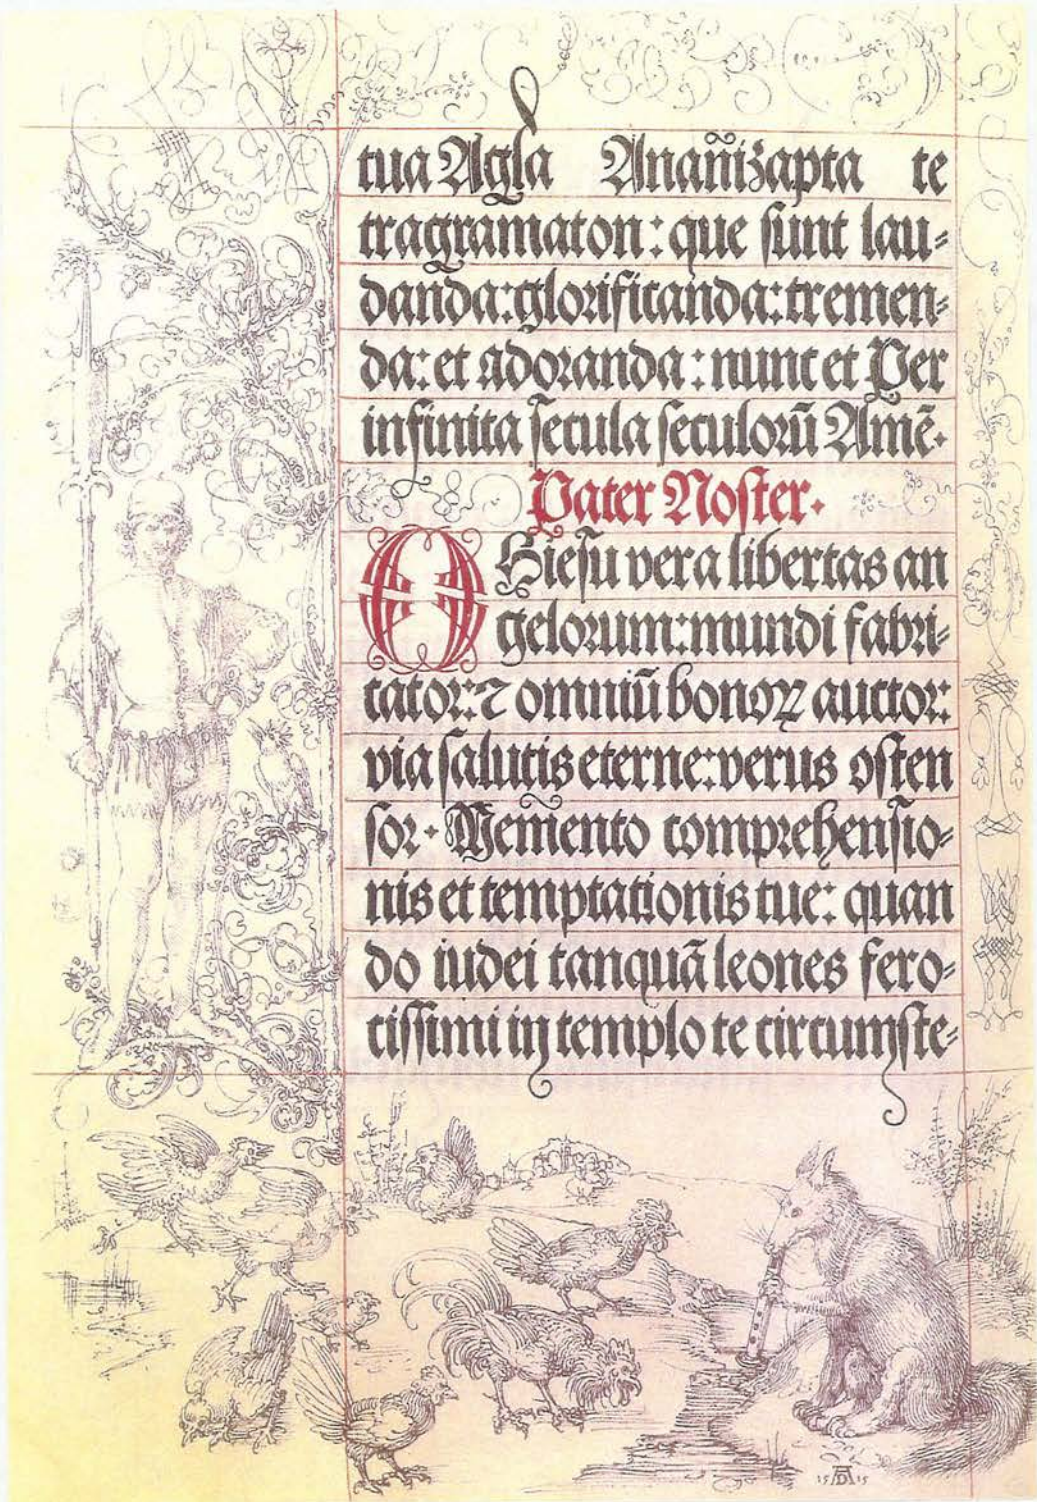 tua Agla Anañizapta te
tragramaton : que sunt lau-
danda: glorificanda: tremen-
da: et adoranda : nunc et Per
infinita secula seculorū Amē.
Pater Noster.
O Hiesu vera libertas an
gelorum: mundi fabri-
cator: ⁊ omniū bonoꝝ auctor:
via salutis eterne: verus osten
sor. Memento comprehensio-
nis et temptationis tue: quan
do iudei tanquā leones fero-
cissimi in templo te circumste-
15 AD 15